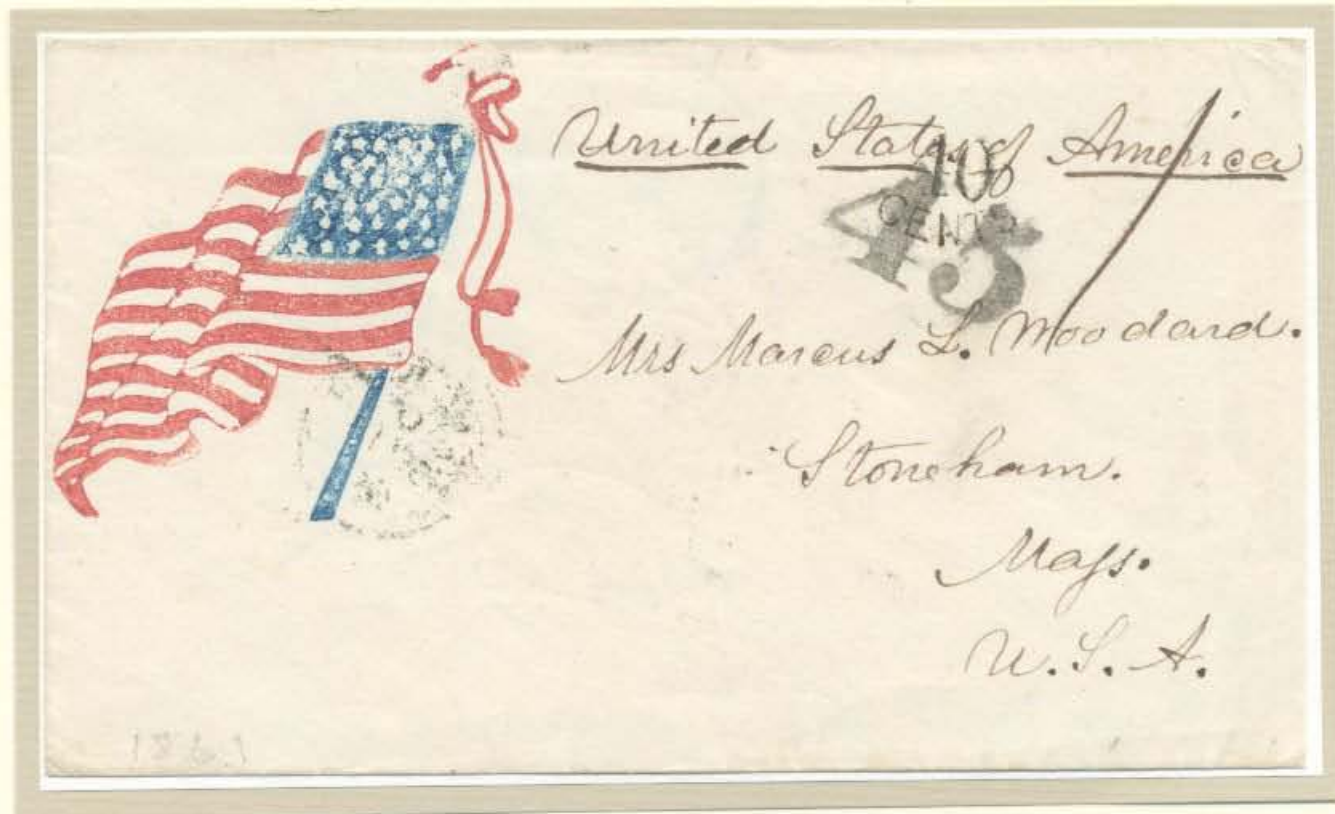 United States of America
10
CENTS
45
Mrs Marcus L. Woodard.
Stoneham.
Mass.
U.S.A.